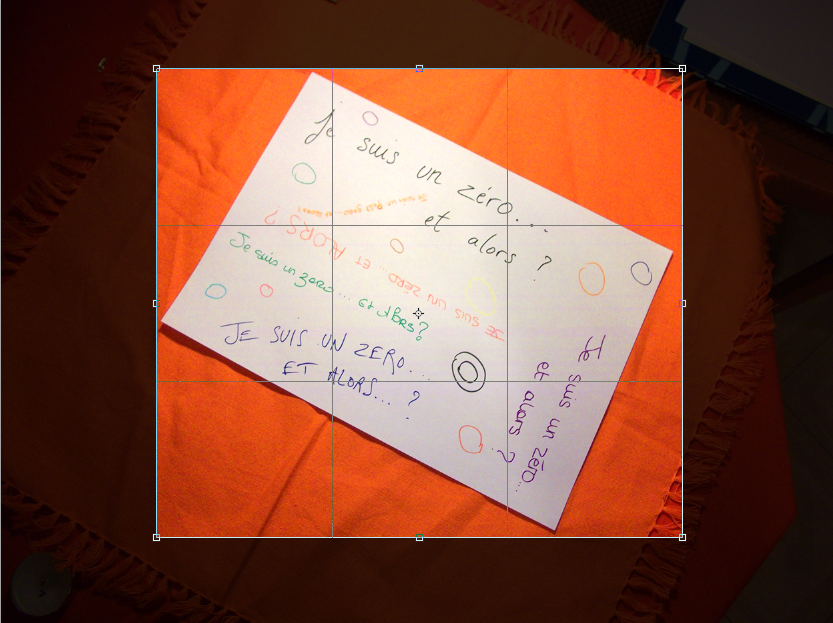 Je suis un zéro...
et alors ?
JE SUIS UN ZERO... ET ALORS ?
Je suis un zero... et aloRs?
JE SUIS UN ZERO...
ET ALORS... ?
Je suis un zéro...
et alors ?